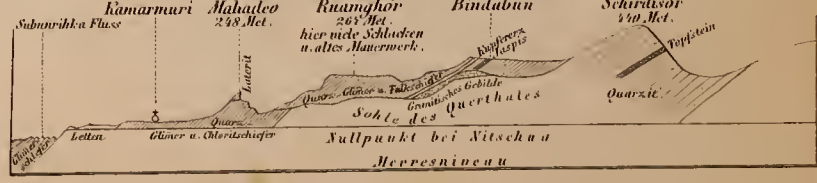 Kamarmuri
Mahadeo
248 Met.
Ruamghor
264 Met.
hier viele Schlacken
u. altes Mauerwerk.
Bindubun
Schirdisor
440 Met.
Subunrihka Fluss
Laterit
Kupfererz
Jaspis
Topfstein
Quarz
Glimer u. Talkschiefer
Granitisches Gebilde
Quarzit
Sohle des Querthales
Quarz
Glimer
schiefer
Letten
Glimer u. Chloritschiefer
Nullpunkt bei Nitschna
Meeresniveau